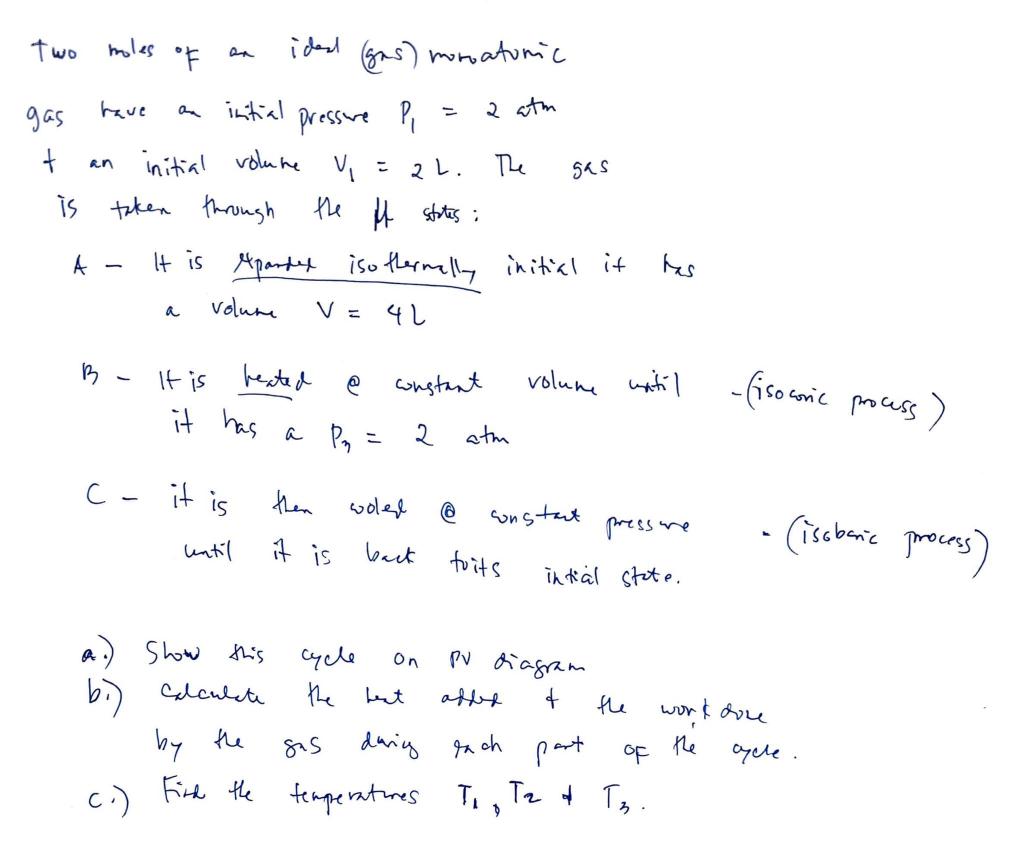 Two moles of an ideal (gas) monoatomic
gas have an initial pressure P₁ = 2 atm
+ an initial volume V₁ = 2 L. The gas
is taken through the states :
A - It is expanded isothermally initial it has
a volume V = 4 L
B - It is heated @ constant volume until - (isocoric process)
it has a P₃ = 2 atm
C - it is then cooled @ constant pressure - (isobaric process)
until it is back to its intial state.
a.) Show this cycle on PV diagram
b.) Calculate the heat added + the work done
by the gas during each part of the cycle.
c.) Find the temperatures T₁, T₂ + T₃.